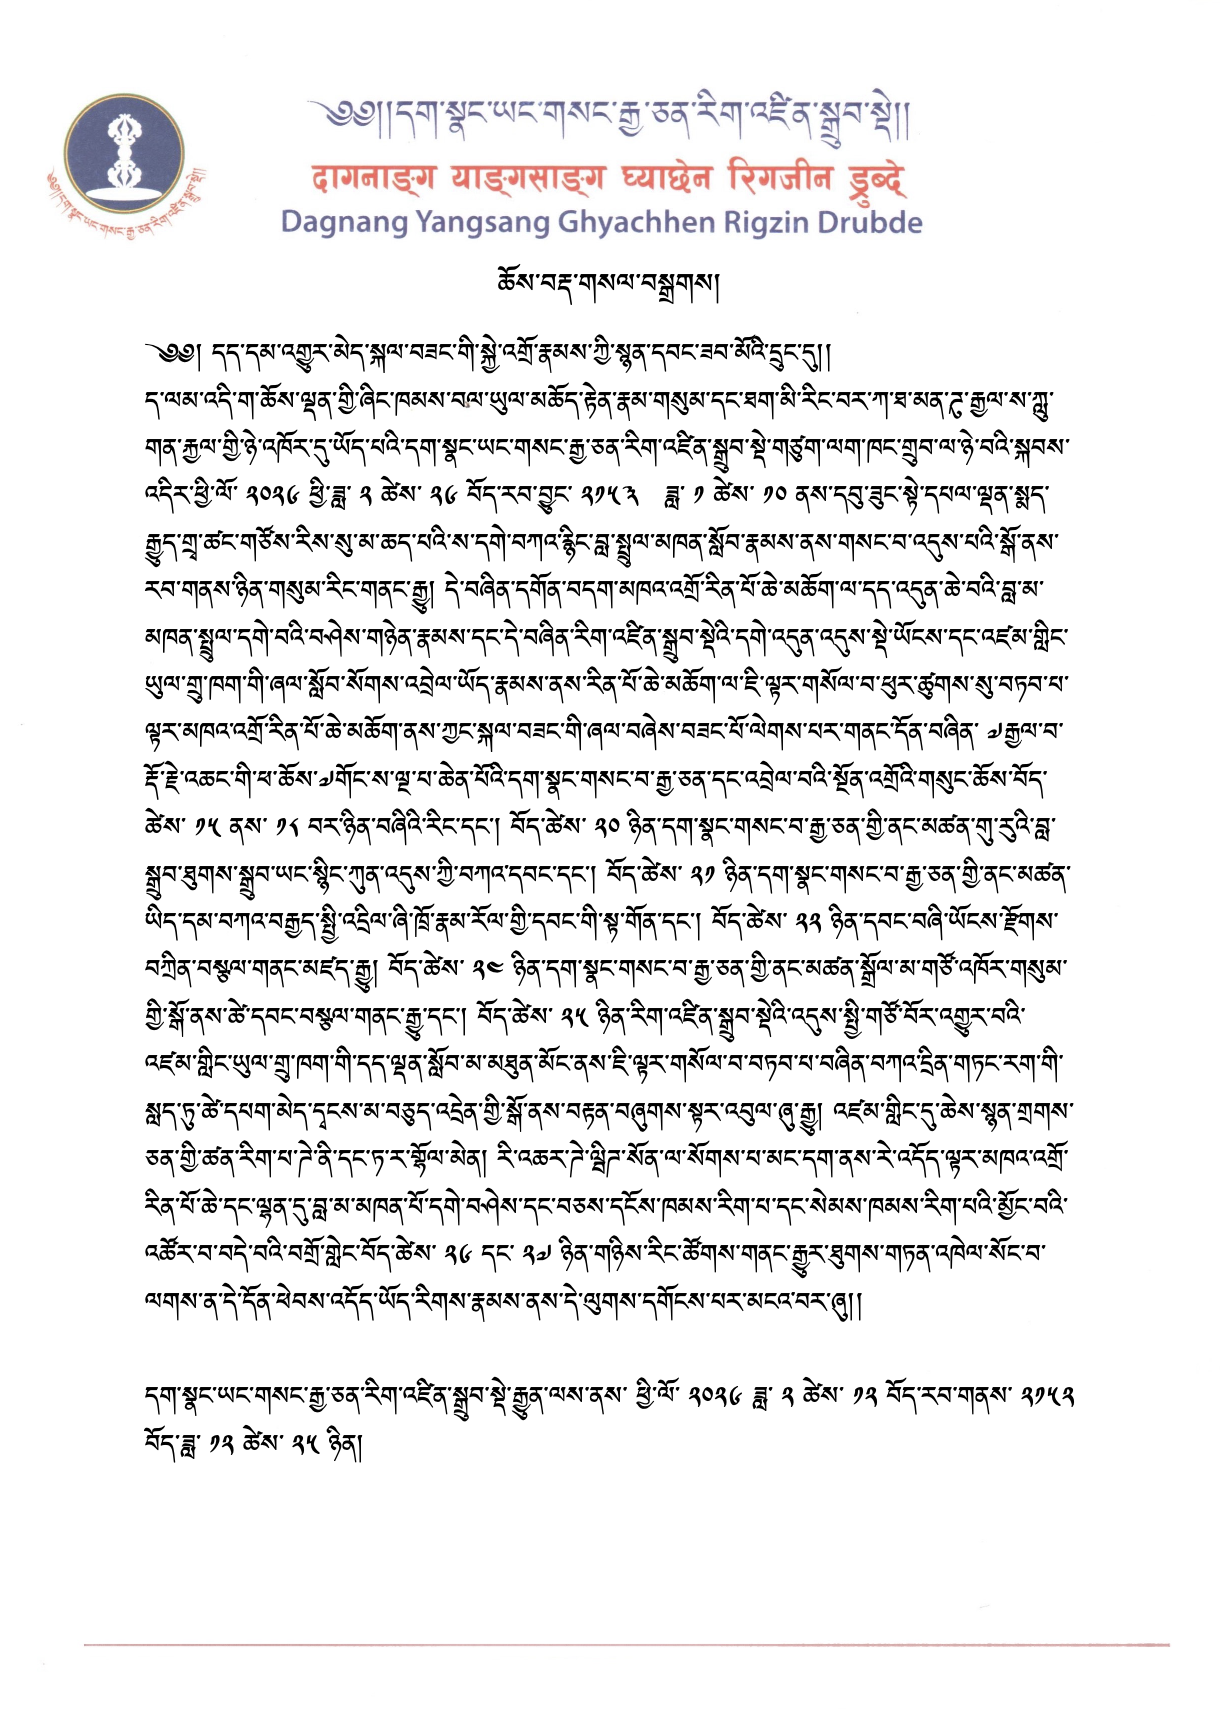 ༄༅།།དག་སྣང་ཡང་གསང་རྒྱ་ཅན་རིག་འཛིན་སྒྲུབ་སྡེ།།
༄༅།།དག་སྣང་ཡང་གསང་རྒྱ་ཅན་རིག་འཛིན་སྒྲུབ་སྡེ།།
दागनाङ्ग याङ्गसाङ्ग घ्याछेन रिगजीन ड्रुब्दे
Dagnang Yangsang Ghyachhen Rigzin Drubde
ཆོས་བརྡ་གསལ་བསྒྲགས།
༄༅། དད་དམ་འགྱུར་མེད་སྐལ་བཟང་གི་སྐྱེ་འགྲོ་རྣམས་ཀྱི་སྙན་དབང་ཟབ་མོའི་དྲུང་དུ།།
ད་ལམ་འདི་ག་ཆོས་ལྡན་གྱི་ཞིང་ཁམས་བལ་ཡུལ་མཆོད་རྟེན་རྣམ་གསུམ་དང་ཐག་མི་རིང་བར་ཀ་ཐ་མན་ཌུ་རྒྱལ་ས་ཀླུ་
གན་རྐྱལ་གྱི་ཉེ་འཁོར་དུ་ཡོད་པའི་དག་སྣང་ཡང་གསང་རྒྱ་ཅན་རིག་འཛིན་སྒྲུབ་སྡེ་གཙུག་ལག་ཁང་གྲུབ་ལ་ཉེ་བའི་སྐབས་
འདིར་ཕྱི་ལོ་ ༢༠༢༦ ཕྱི་ཟླ་ ༢ ཚེས་ ༢༦ བོད་རབ་བྱུང་ ༢༡༥༣ ཟླ་ ༡ ཚེས་ ༡༠ ནས་དབུ་ཟུང་སྟེ་དཔལ་ལྡན་སྨད་
རྒྱུད་གྲྭ་ཚང་གཙོས་རིས་སུ་མ་ཆད་པའི་ས་དགེ་བཀའ་རྙིང་བླ་སྤྲུལ་མཁན་སློབ་རྣམས་ནས་གསང་བ་འདུས་པའི་སྒོ་ནས་
རབ་གནས་ཉིན་གསུམ་རིང་གནང་རྒྱུ། དེ་བཞིན་དགོན་བདག་མཁའ་འགྲོ་རིན་པོ་ཆེ་མཆོག་ལ་དད་འདུན་ཆེ་བའི་བླ་མ་
མཁན་སྤྲུལ་དགེ་བའི་བཤེས་གཉེན་རྣམས་དང་དེ་བཞིན་རིག་འཛིན་སྒྲུབ་སྡེའི་དགེ་འདུན་འདུས་སྡེ་ཡོངས་དང་འཛམ་གླིང་
ཡུལ་གྲུ་ཁག་གི་ཞལ་སློབ་སོགས་འབྲེལ་ཡོད་རྣམས་ནས་རིན་པོ་ཆེ་མཆོག་ལ་ཇི་ལྟར་གསོལ་བ་ཕུར་ཚུགས་སུ་བཏབ་པ་
ལྟར་མཁའ་འགྲོ་རིན་པོ་ཆེ་མཆོག་ནས་ཀྱང་སྐལ་བཟང་གི་ཞལ་བཞེས་བཟང་པོ་ལེགས་པར་གནང་དོན་བཞིན་ ༧རྒྱལ་བ་
རྡོ་རྗེ་འཆང་གི་ཕ་ཆོས་༧གོང་ས་ལྔ་པ་ཆེན་པོའི་དག་སྣང་གསང་བ་རྒྱ་ཅན་དང་འབྲེལ་བའི་སྔོན་འགྲོའི་གསུང་ཆོས་བོད་
ཚེས་ ༡༥ ནས་ ༡༨ བར་ཉིན་བཞིའི་རིང་དང་། བོད་ཚེས་ ༢༠ ཉིན་དག་སྣང་གསང་བ་རྒྱ་ཅན་གྱི་ནང་མཚན་གུ་རུའི་བླ་
སྒྲུབ་ཐུགས་སྒྲུབ་ཡང་སྙིང་ཀུན་འདུས་ཀྱི་བཀའ་དབང་དང་། བོད་ཚེས་ ༢༡ ཉིན་དག་སྣང་གསང་བ་རྒྱ་ཅན་གྱི་ནང་མཚན་
ཡིད་དམ་བཀའ་བརྒྱད་སྤྱི་འདྲིལ་ཞི་ཁྲོ་རྣམ་རོལ་གྱི་དབང་གི་སྟ་གོན་དང་། བོད་ཚེས་ ༢༢ ཉིན་དབང་བཞི་ཡོངས་རྫོགས་
བཀྲིན་བསྐྱལ་གནང་མཛད་རྒྱུ། བོད་ཚེས་ ༢༤ ཉིན་དག་སྣང་གསང་བ་རྒྱ་ཅན་གྱི་ནང་མཚན་སྒྲོལ་མ་གཙོ་འཁོར་གསུམ་
གྱི་སྒོ་ནས་ཚེ་དབང་བསྐྱལ་གནང་རྒྱུ་དང་། བོད་ཚེས་ ༢༥ ཉིན་རིག་འཛིན་སྒྲུབ་སྡེའི་འདུས་སྤྱི་གཙོ་བོར་འགྱུར་བའི་
འཛམ་གླིང་ཡུལ་གྲུ་ཁག་གི་དད་ལྡན་སློབ་མ་མཐུན་མོང་ནས་ཇི་ལྟར་གསོལ་བ་བཏབ་པ་བཞིན་བཀའ་དྲིན་གཏང་རག་གི་
སླད་ཏུ་ཚེ་དཔག་མེད་དྭངས་མ་བཅུད་འདྲེན་གྱི་སྒོ་ནས་བརྟན་བཞུགས་སྟར་འབུལ་ཞུ་རྒྱུ། འཛམ་གླིང་དུ་ཆེས་སྙན་གྲགས་
ཅན་གྱི་ཚན་རིག་པ་ཌེ་ནི་དང་ཏ་ར་གྷོལ་མེན། རི་འཆར་ཌེ་ཝིཌ་སོན་ལ་སོགས་པ་མང་དག་ནས་རེ་འདོད་ལྟར་མཁའ་འགྲོ་
རིན་པོ་ཆེ་དང་ལྷན་དུ་བླ་མ་མཁན་པོ་དགེ་བཤེས་དང་བཅས་དངོས་ཁམས་རིག་པ་དང་སེམས་ཁམས་རིག་པའི་མྱོང་བའི་
འཚོར་བ་བདེ་བའི་བགྲོ་གླེང་བོད་ཚེས་ ༢༦ དང་ ༢༧ ཉིན་གཉིས་རིང་ཚོགས་གནང་རྒྱུར་ཐུགས་གཏན་འཁེལ་སོང་བ་
ལགས་ན་དེ་དོན་ཕེབས་འདོད་ཡོད་རིགས་རྣམས་ནས་དེ་ལུགས་དགོངས་པར་མངའ་བར་ཞུ།།
དག་སྣང་ཡང་གསང་རྒྱ་ཅན་རིག་འཛིན་སྒྲུབ་སྡེ་རྒྱུན་ལས་ནས་ ཕྱི་ལོ་ ༢༠༢༦ ཟླ་ ༢ ཚེས་ ༡༢ བོད་རབ་གནས་ ༢༡༥༢
བོད་ཟླ་ ༡༢ ཚེས་ ༢༥ ཉིན།